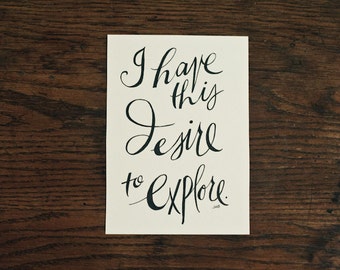 I have
this
Desire
to explore.